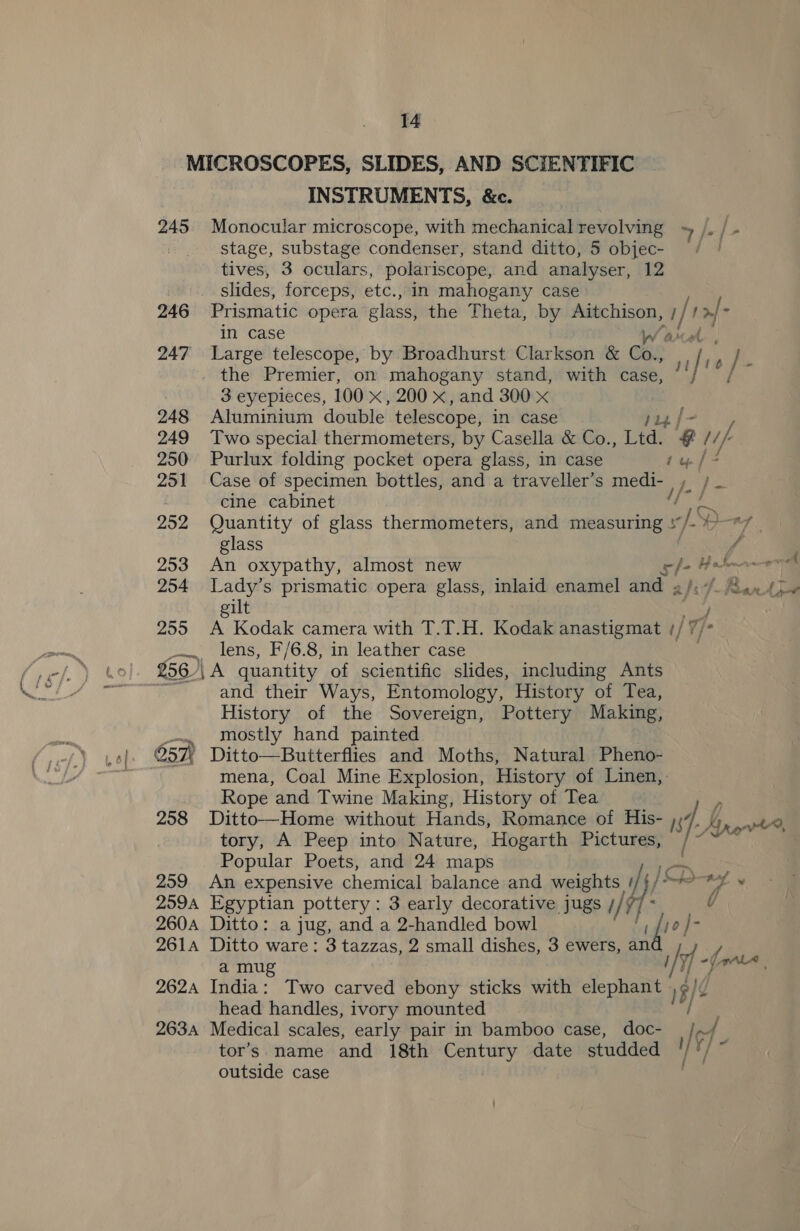 14
MICROSCOPES, SLIDES, AND SCIENTIFIC
INSTRUMENTS, &c.
245 Monocular microscope, with mechanical revolving
stage, substage condenser, stand ditto, 5 objec-
tives, 3 oculars, polariscope, and analyser, 12
slides, forceps, etc., in mahogany case
246 Prismatic opera glass, the Theta, by Aitchison,
in case
247 Large telescope, by Broadhurst Clarkson & Co.,
the Premier, on mahogany stand, with case,
3 eyepieces, 100 ×, 200 ×, and 300 ×
248 Aluminium double telescope, in case
249 Two special thermometers, by Casella & Co., Ltd.
250 Purlux folding pocket opera glass, in case
251 Case of specimen bottles, and a traveller's medi-
cine cabinet
252 Quantity of glass thermometers, and measuring
glass
253 An oxypathy, almost new
254 Lady's prismatic opera glass, inlaid enamel and
gilt
255 A Kodak camera with T.T.H. Kodak anastigmat
lens, F/6.8, in leather case
256 A quantity of scientific slides, including Ants
and their Ways, Entomology, History of Tea,
History of the Sovereign, Pottery Making,
mostly hand painted
257 Ditto—Butterflies and Moths, Natural Pheno-
mena, Coal Mine Explosion, History of Linen,
Rope and Twine Making, History of Tea
258 Ditto—Home without Hands, Romance of His-
tory, A Peep into Nature, Hogarth Pictures,
Popular Poets, and 24 maps
259 An expensive chemical balance and weights
259A Egyptian pottery: 3 early decorative jugs
260A Ditto: a jug, and a 2-handled bowl
261A Ditto ware: 3 tazzas, 2 small dishes, 3 ewers, and
a mug
262A India: Two carved ebony sticks with elephant
head handles, ivory mounted
263A Medical scales, early pair in bamboo case, doc-
tor's name and 18th Century date studded
outside case